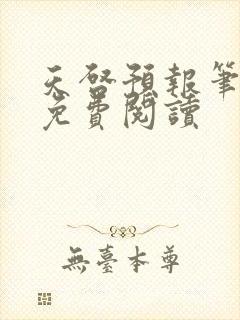 天啓預報筆
免費閱讀
無臺本尊